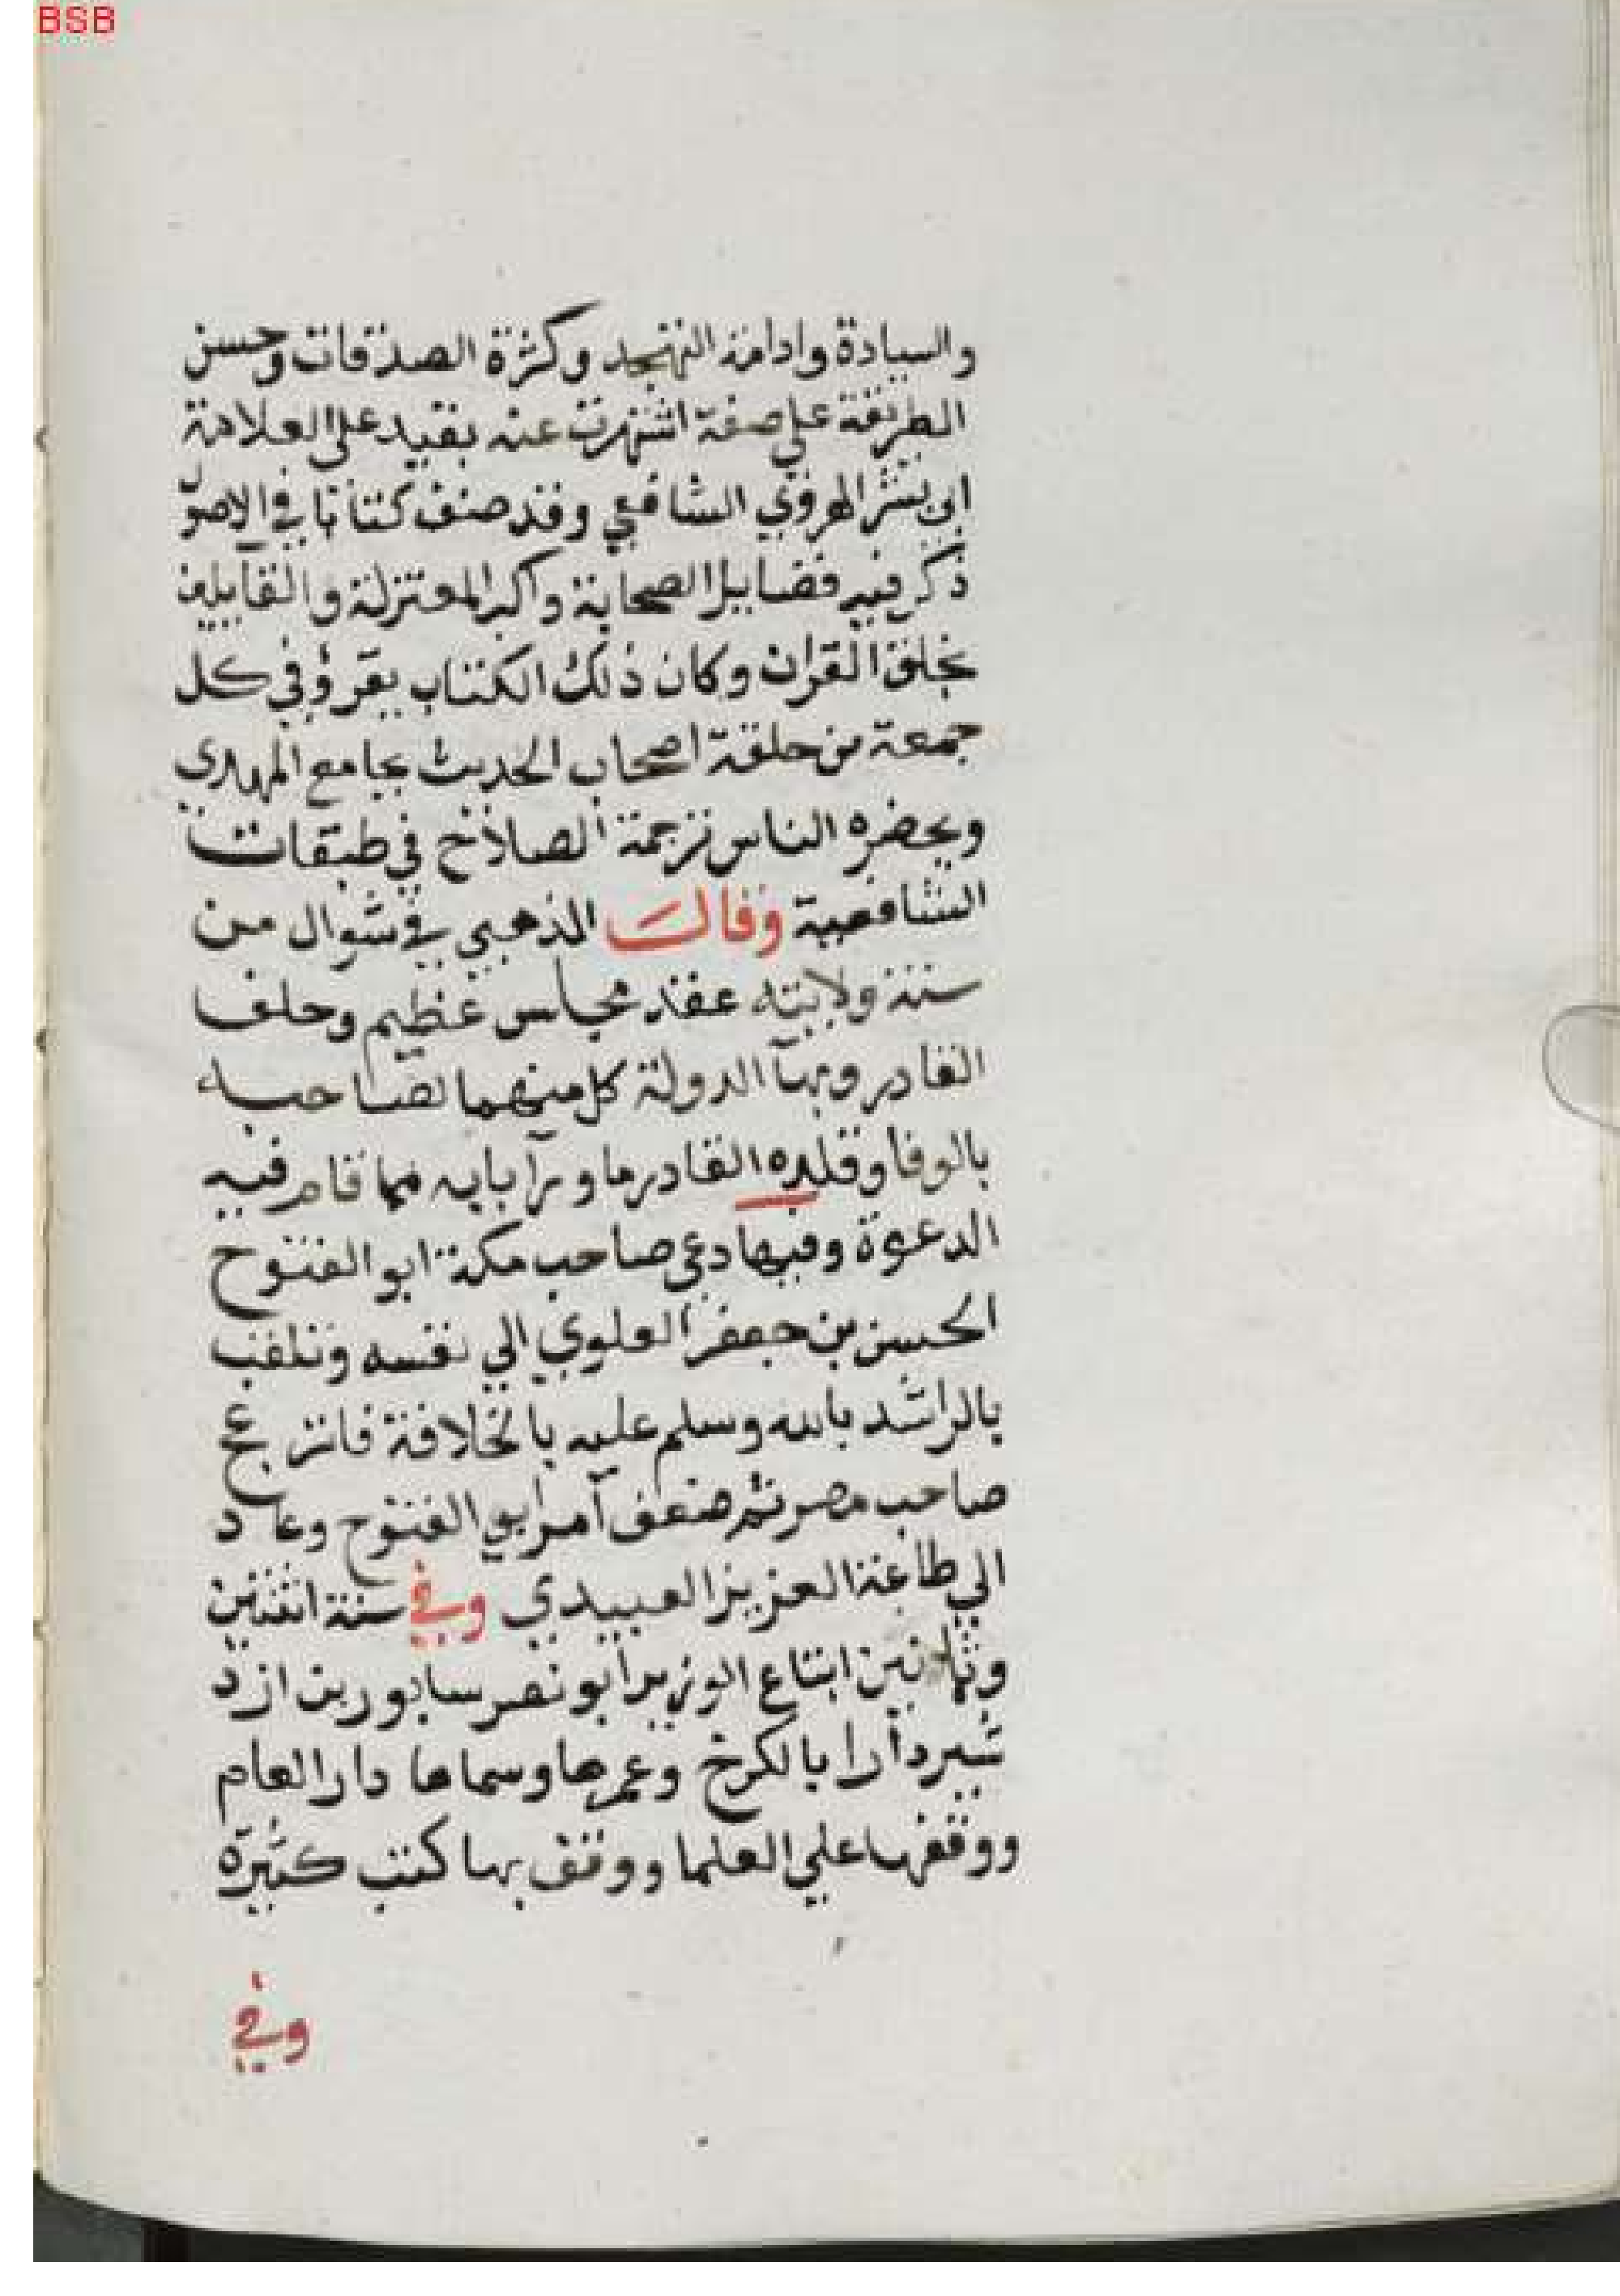 BSB
والسيادة وادامة التهجد وكثرة الصدقات وحسن
الطريقة علي صفة اشتهرت عنه بفقيد على العلامة
ابي بشر الهروي الشافعي وقد صنف كتابا في الاصول
ذكر فيه فضايل الصحابة واكبر المعتزلة والقايلين
بخلق القران وكان ذلك الكتاب يقرؤ في كل
جمعة من حلقة اصحاب الحديث بجامع المهدي
ويحضره الناس ترجمة الصلاح في طبقات
الشافعية وقال الذهبي في شوال من
سنة ولايته عقد مجلس عظيم وحلف
القادر وبهآ الدولة كل منهما لصاحبه
بالوفا وقلده القادر ما ورآ بابه مما قام فيه
الدعوة وفيها دعي صاحب مكة ابو الفتوح
الحسن بن جعفر العلوي الي نفسه وتلقب
بالراشد بالله وسلم عليه بالخلافة فانزعج
صاحب مصر ثم ضعف آمر ابي الفتوح وعاد
الي طاعة العزيز العبيدي وفي سنة اثنتين
وثمانين ابتاع الوزير ابو نصر سابور بن ازد
شير دارا بالكرخ وعمرها وسماها دار العلم
ووقفها علي العلما ووقف بها كتب كثيرة
وفي